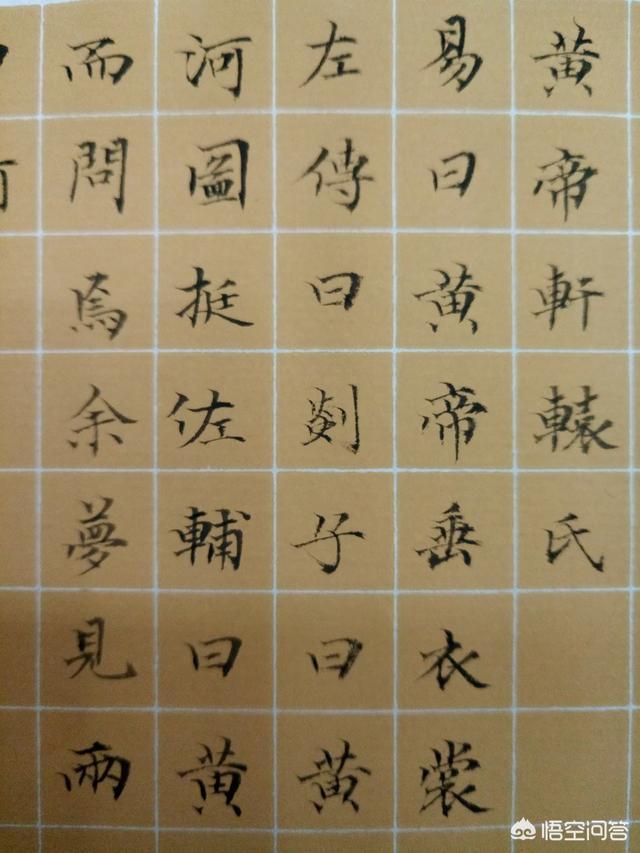 黄帝軒轅氏
易曰黄帝垂衣裳
左傳曰剡子曰黄
河圖挺佐輔曰黄
而問焉余夢見兩
悟空问答